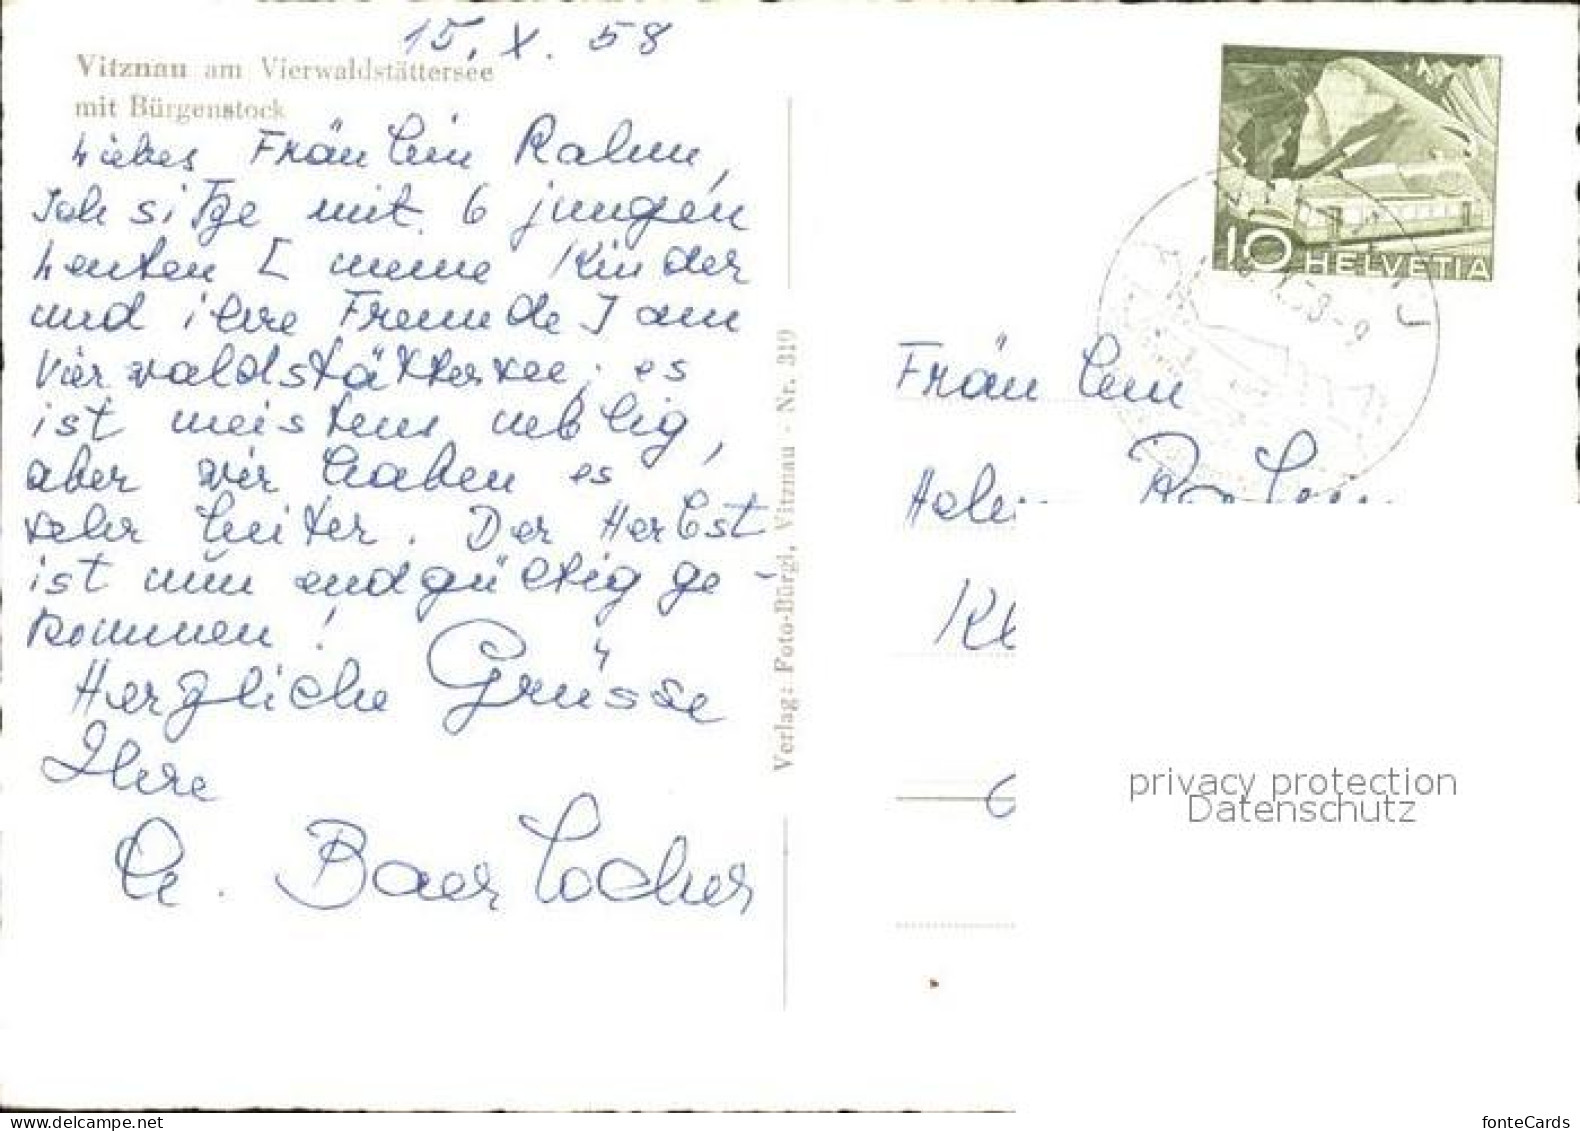 15. X. 58
Vitznau am Vierwaldstättersee
mit Bürgenstock
Liebes Fräulein Rahm,
Ich sitze mit 6 jungen
Leuten [ meine Kinder
und ihre Freunde ] am
Vierwaldstättersee; es
ist meistens neblig,
aber wir haben es
sehr heiter. Der Herbst
ist nun endgültig ge-
kommen!
Herzliche Grüsse
Ihre
Baerlocher
Verlag: Foto-Bürgi, Vitznau - Nr. 319
10 HELVETIA
Fräulein
privacy protection
Datenschutz
fonteCards